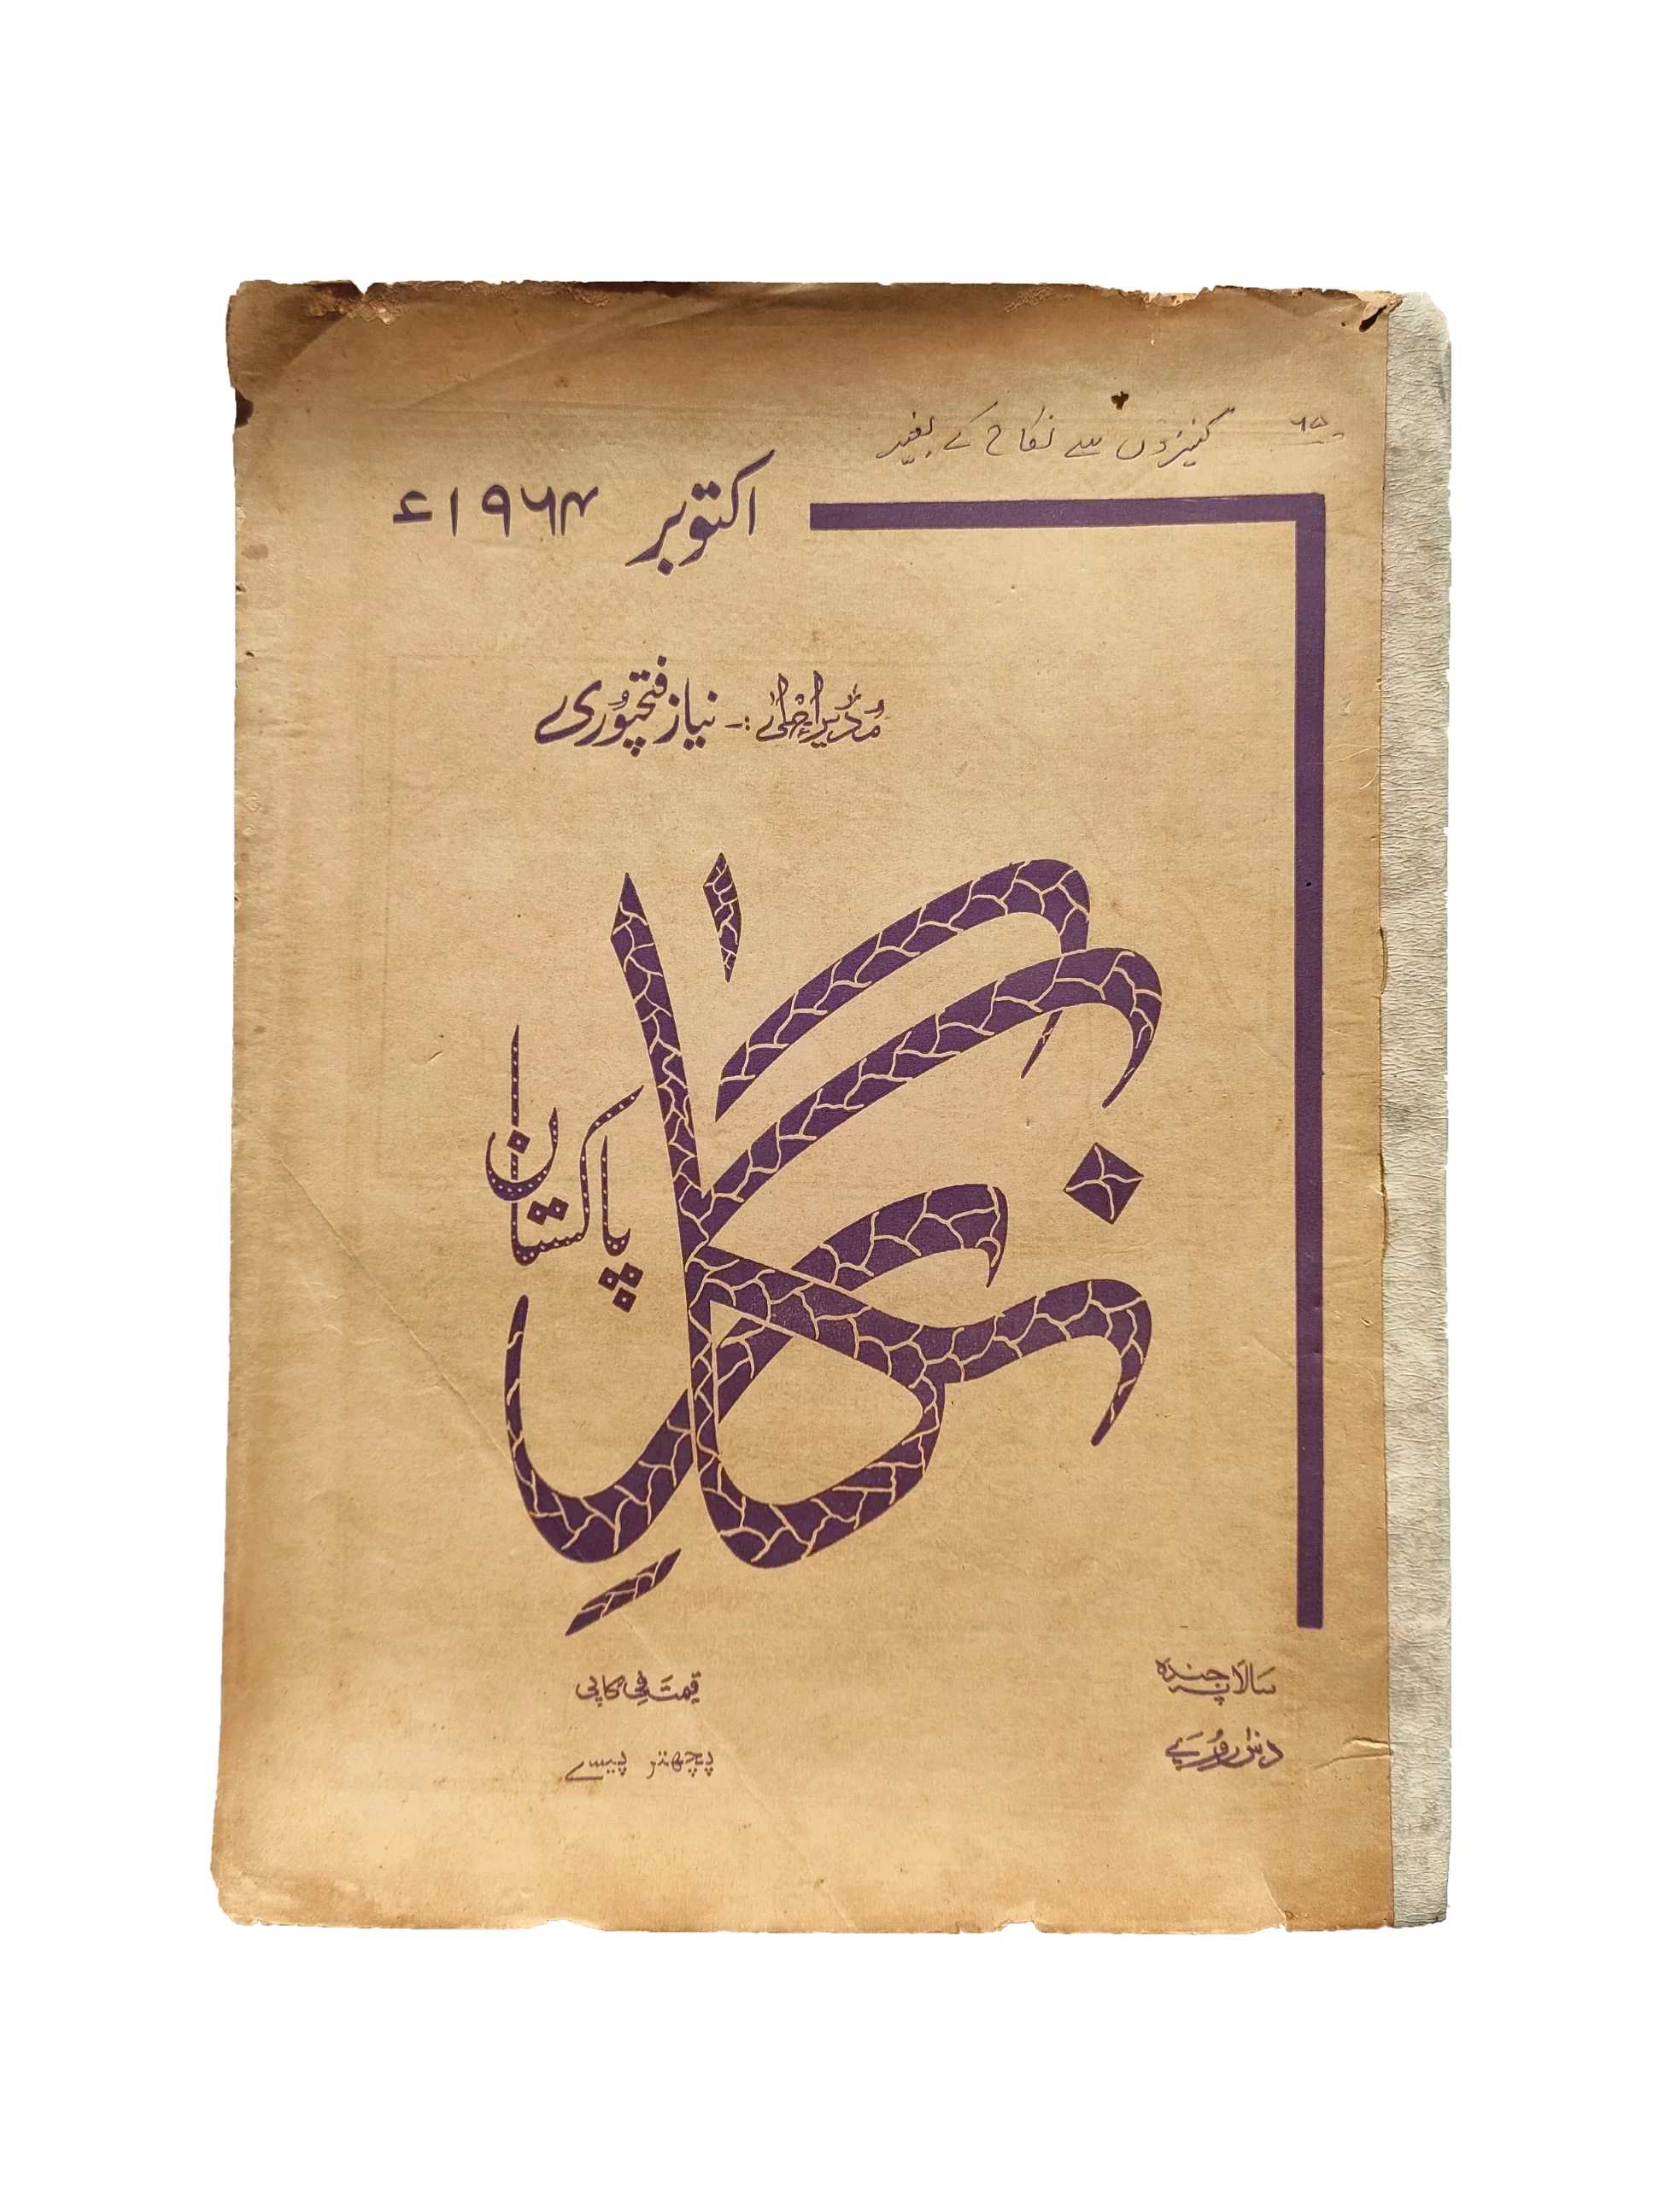 ۶۵ کنیزوں سے نکاح کے بغیر
اکتوبر ۱۹۶۴ء
مُدیرِاعلیٰ :- نیاز فتحپُوری
نگار
پاکستان
سالانہ چندہ
دس روپے
قیمت فی کاپی
پچھتر پیسے